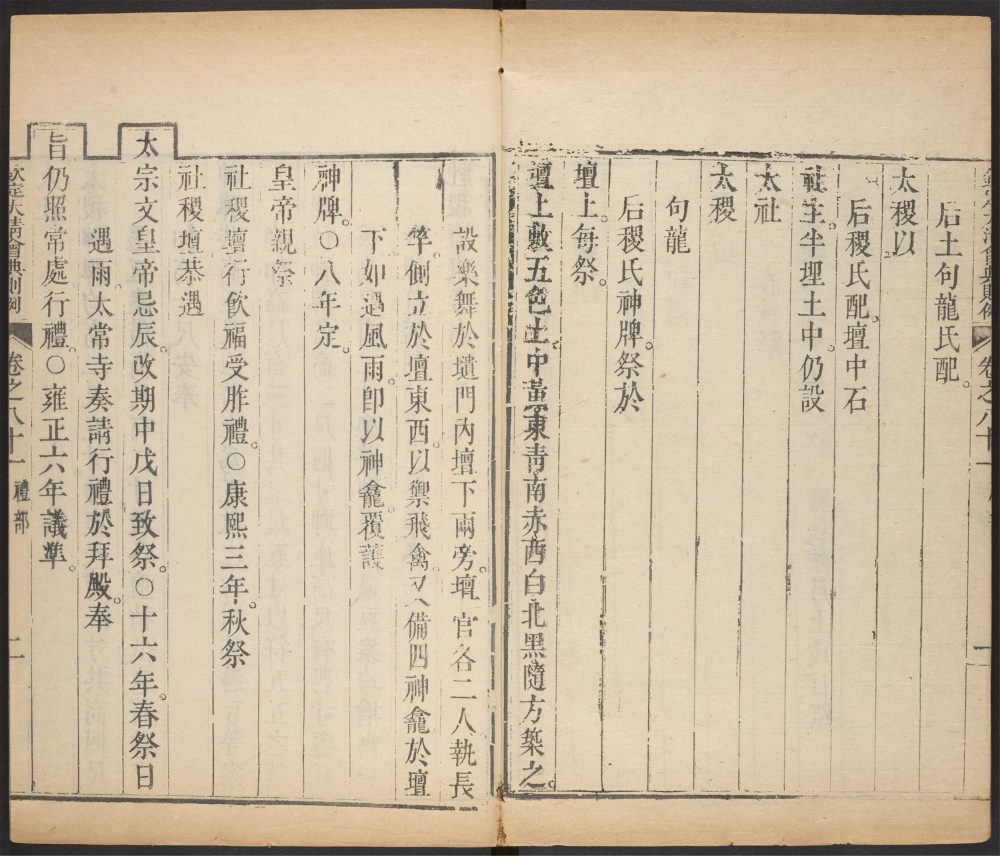 后土句龍氏配。
太稷以
后稷氏配。壇中石
社主。半埋土中。仍設
太社
太稷
句龍
后稷氏神牌。祭於
壇上。每祭。
壇上敷五色土。中黃。東青南赤西白北黑。隨方築之。
設樂舞於壝門內壇下兩旁。壇官各二人執長
竿。側立於壇東西。以禦飛禽。又備四神龕於壇
下。如遇風雨。卽以神龕覆護
神牌。○八年定。
皇帝親祭
社稷壇行飲福受胙禮。○康熙三年。秋祭
社稷壇恭遇
太宗文皇帝忌辰。改期中戊日致祭。○十六年。春祭日
遇雨。太常寺奏請行禮於拜殿。奉
旨仍照常處行禮。○雍正六年議準。
欽定大清會典則例 卷之八十一 禮部 二